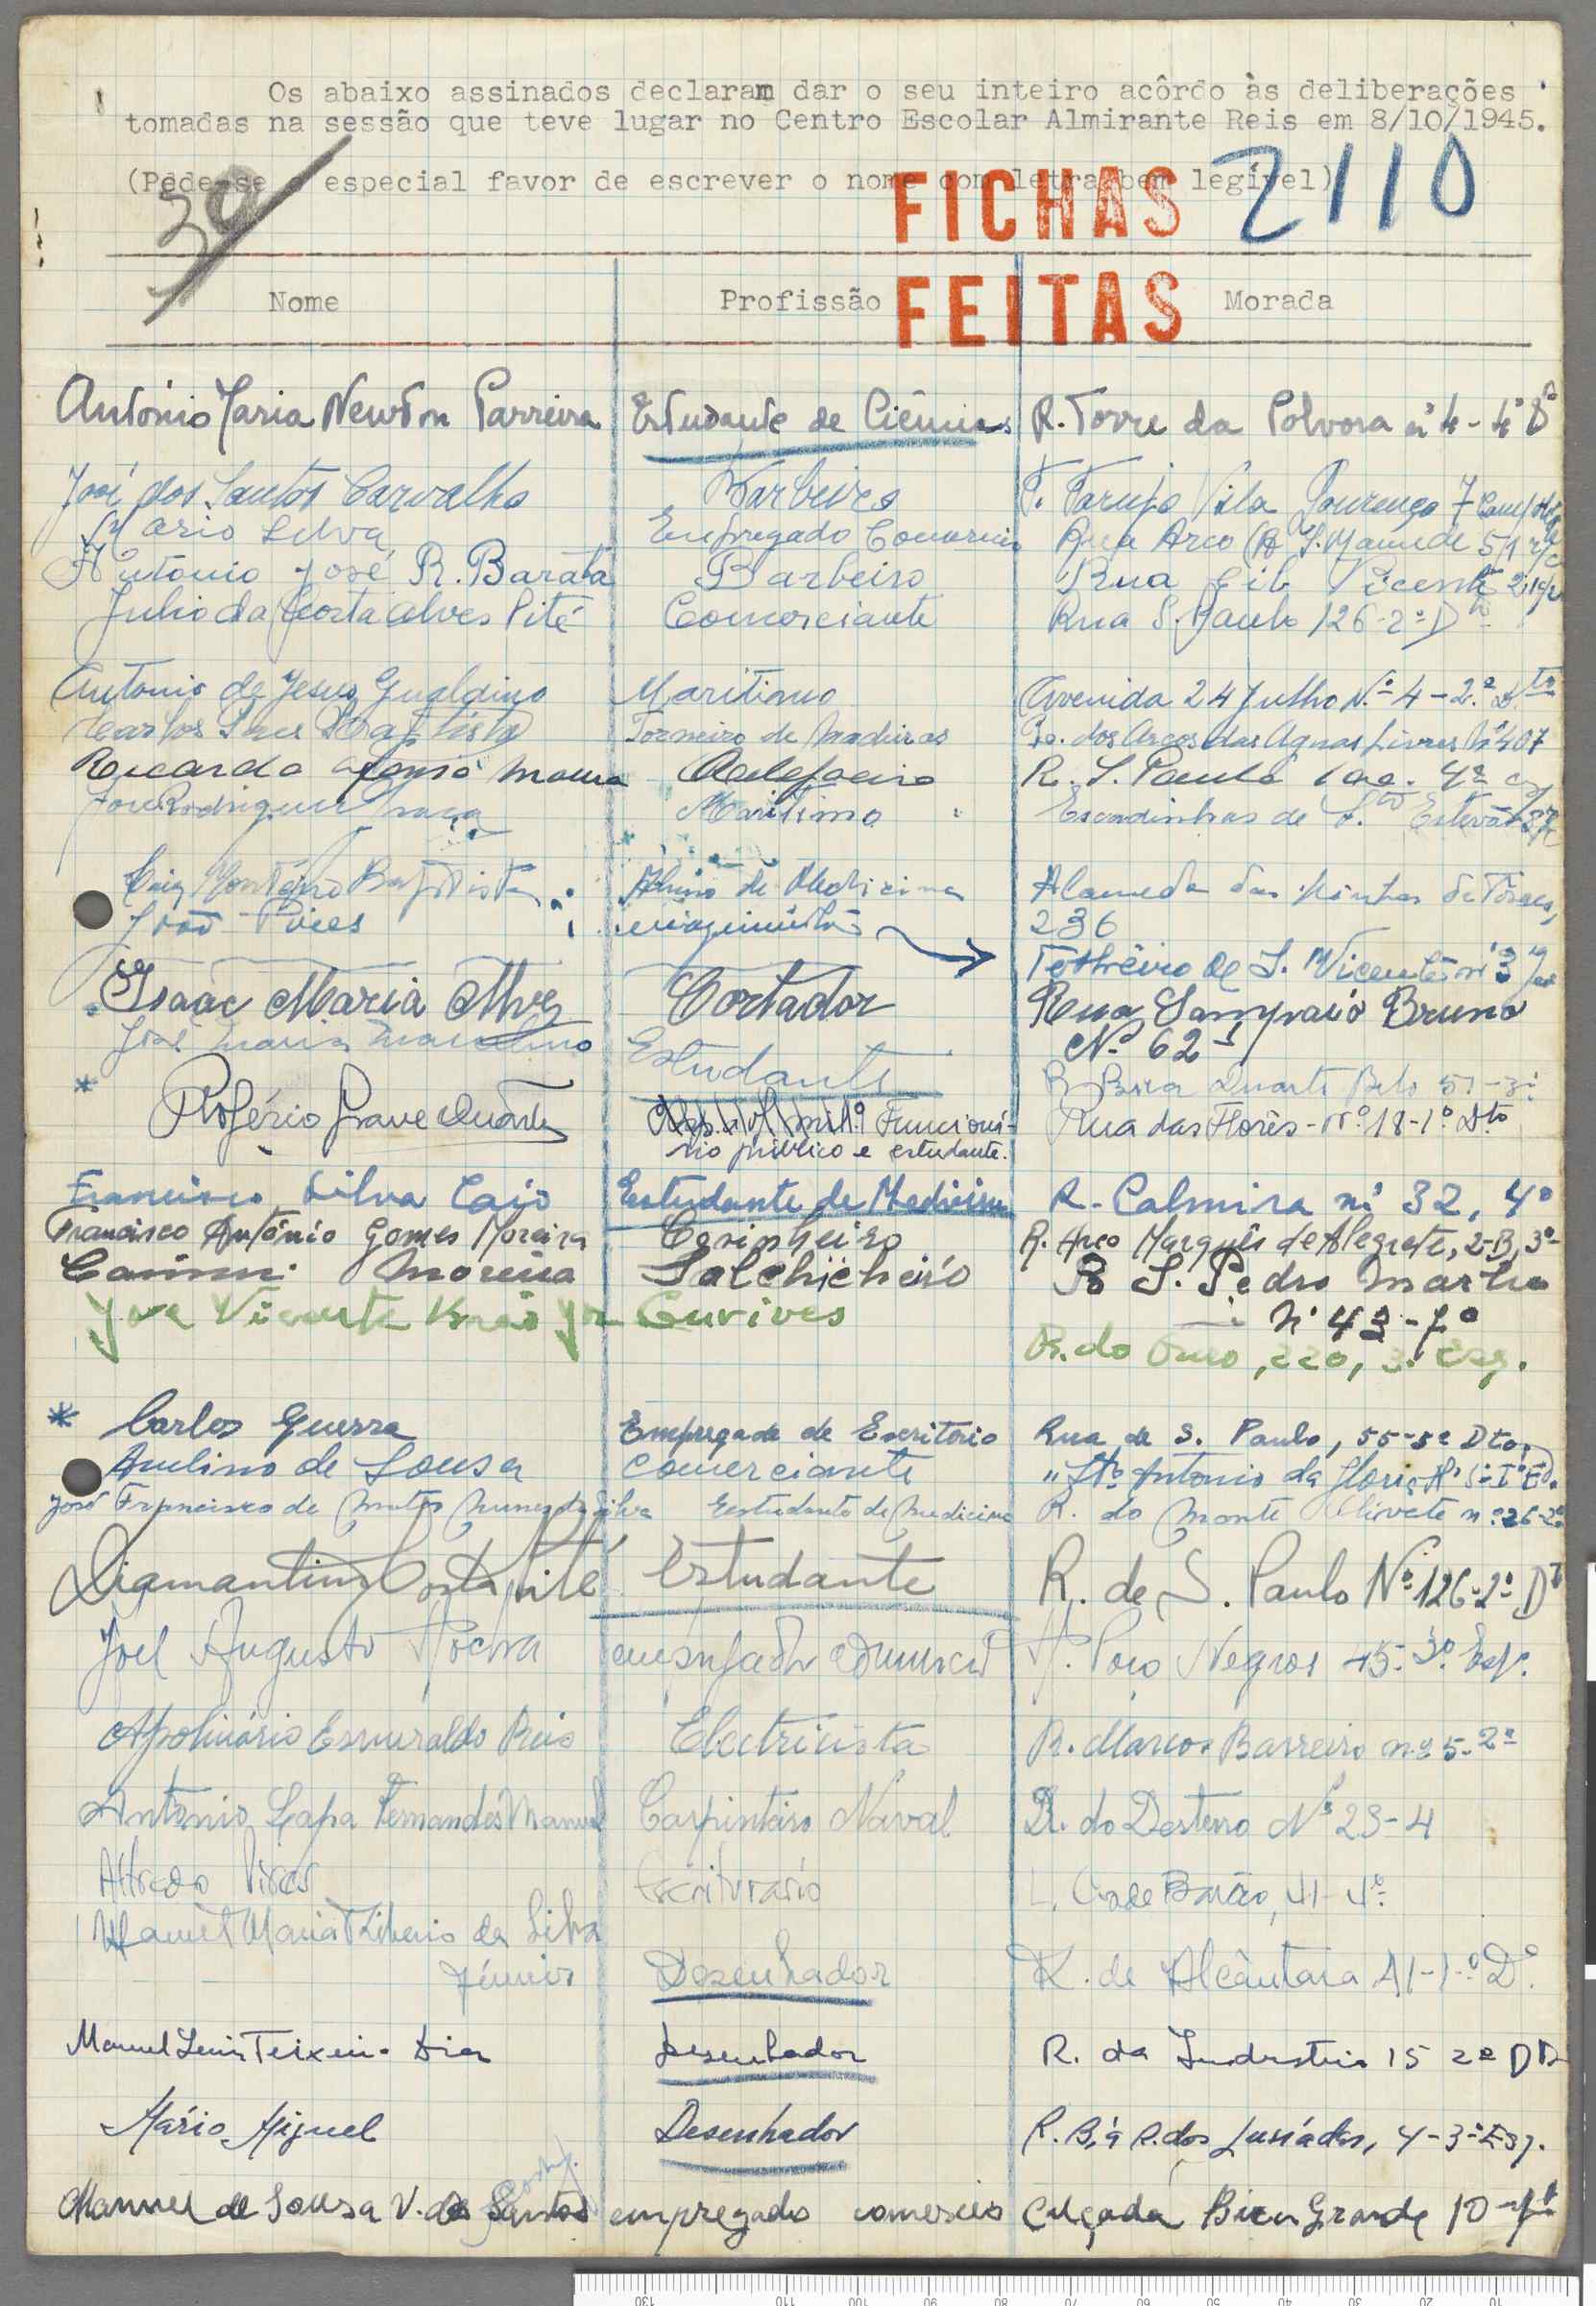 Os abaixo assinados declaram dar o seu inteiro acôrdo às deliberações
tomadas na sessão que teve lugar no Centro Escolar Almirante Reis em 8/10/1945.
(Pede-se o especial favor de escrever o nome com letra bem legível)
39
FICHAS 2110
FEITAS
Nome Profissão Morada
António Maria Newton Parreira Estudante de Ciências R. Torre da Polvora nº 4-4º D
José dos Santos Carvalho Barbeiro Vila Lourenço 7
Mario Silva Empregado Comercio Rua Arco (A S. Mamede 51 r/c
António José R. Barata Barbeiro Rua Gil Vicente
Julio da Costa Alves Pité Comerciante Rua S. Paulo 126-2º D
Antonio de Jesus Gualdino Maritimo Avenida 24 Julho N.º 4-2.º D.to
Carlos Baptista Torneiro de Madeiras dos Arcos das Aguas Livres
Ricardo Afonso Moura R. S. Paulo 4º
José Rodrigues Graça Maritimo Escadinhas de S.to Estevão
Luiz Monteiro Baptista Aluno de Medicina Alameda das Linhas de Torres,
João Pires 236
de S. Vicente nº 3
Isaac Maria Alves Cortador Rua Sampaio Bruno
Nº 62
José Maria Marcelino Estudante R. Duarte Belo 51-3º
* Rogério Grave Duarte Funcioná- Rua das Flores-nº 18-1º Dto
rio público e estudante.
Francisco Silva Caio Estudante de Medicina R. Palmira nº 32, 4º
Francisco António Gomes Moreira Cosinheiro R. Arco Marquês de Alegrete, 2-B, 3º
Moreira Salchicheiro R S. Pedro Martir
nº 43-1º
José Vicente Jr Ourives
R. do Ouro, 220, 3. Esq.
* Carlos Guerra Empregado de Escritório Rua de S. Paulo, 55-5º Dto.
Avelino de Sousa Comerciante " Stº Antonio da Gloria
José Francisco de Matos Nunes da Silva Estudante de Medicina R. do Monte Olivete nº 26-2º
Diamantino Costa Pité Estudante R. de S. Paulo Nº 126-2º Dt
Joel Augusto Rocha Poço Negros 45-3º Esq.
Apolinário Esmeraldo Reis Electricista R. Marcos Barreiro nº 5-2º
António Lapa Fernandes Manuel Carpinteiro Naval R. do Desterro Nº 23-4
Alfredo Pires Escriturário L. Conde Barão, 41-4º
Manuel Maria Liberio da Silva
Júnior Desenhador R. de Alcântara 41-1º D.
Manuel Luis Teixeira Dias Desenhador R. da Industria 15 2º Dt
Mário Miguel Desenhador R. B, à R. dos Lusíadas, 4-3º Esq.
Manuel de Sousa V. dos Santos empregado comercio Calçada Bica Grande 10